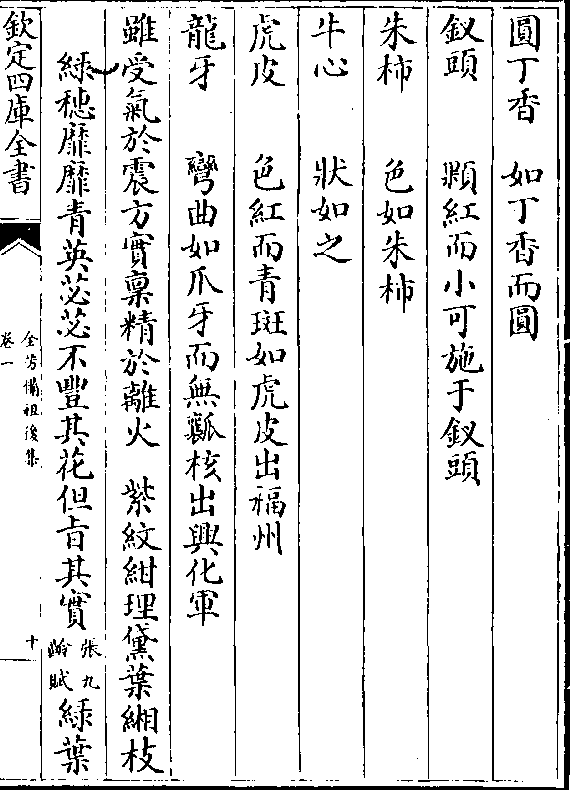 圓丁香　如丁香而圓
釵頭　顆紅而小可施于釵頭
朱柿　色如朱柿
牛心　狀如之
虎皮　色紅而青斑如虎皮出福州
龍牙　彎曲如爪牙而無瓤核出興化軍
雖受氣於震方實稟精於離火　紫紋紺理黛葉緗枝
綠穗靡靡青英苾苾不豐其花但旨其實張九齡賦綠葉
欽定四庫全書
全芳備祖後集
卷一
十